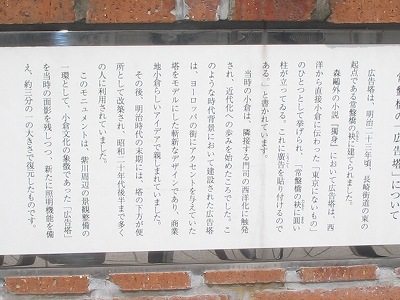 常盤橋の「広告塔」について
広告塔は、明治二十三年頃、長崎街道の東の
起点である常盤橋の袂に建てられました。
森鷗外の小説「獨身」において広告塔は、西
洋から直接小倉に伝わった「東京にないもの」
のひとつとして挙げられ、「常盤橋の袂に圓い
柱が立ってゐる。これに廣告を貼り付けるので
ある。」と書かれています。
当時の小倉は、隣接する門司の西洋化に触発
され、近代化への歩みを始めたころでした。こ
のような時代背景において建設された広告塔
は、ヨーロッパの街にアクセントを与えていた
塔をモデルにした斬新なデザインであり、商業
地小倉らしいアイデアで親しまれていました。
その後、明治時代の末期には、塔の下方が便
所として改築され、昭和二十年代後半まで多く
の人に利用されていました。
このモニュメントは、紫川周辺の景観整備の
一環として、小倉文化の象徴であった「広告塔」
を当時の面影を残しつつ、新たに照明機能を備
え、約三分の一の大きさで復元したものです。